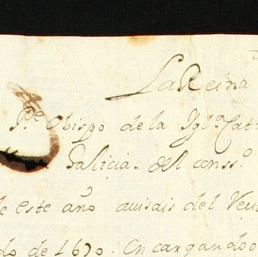 La Reina
R.do Obispo de la Ygl.a Cat
Galicia. del conss.o
de este año auisais del Reçiuo
do de 1670. Encargandoo